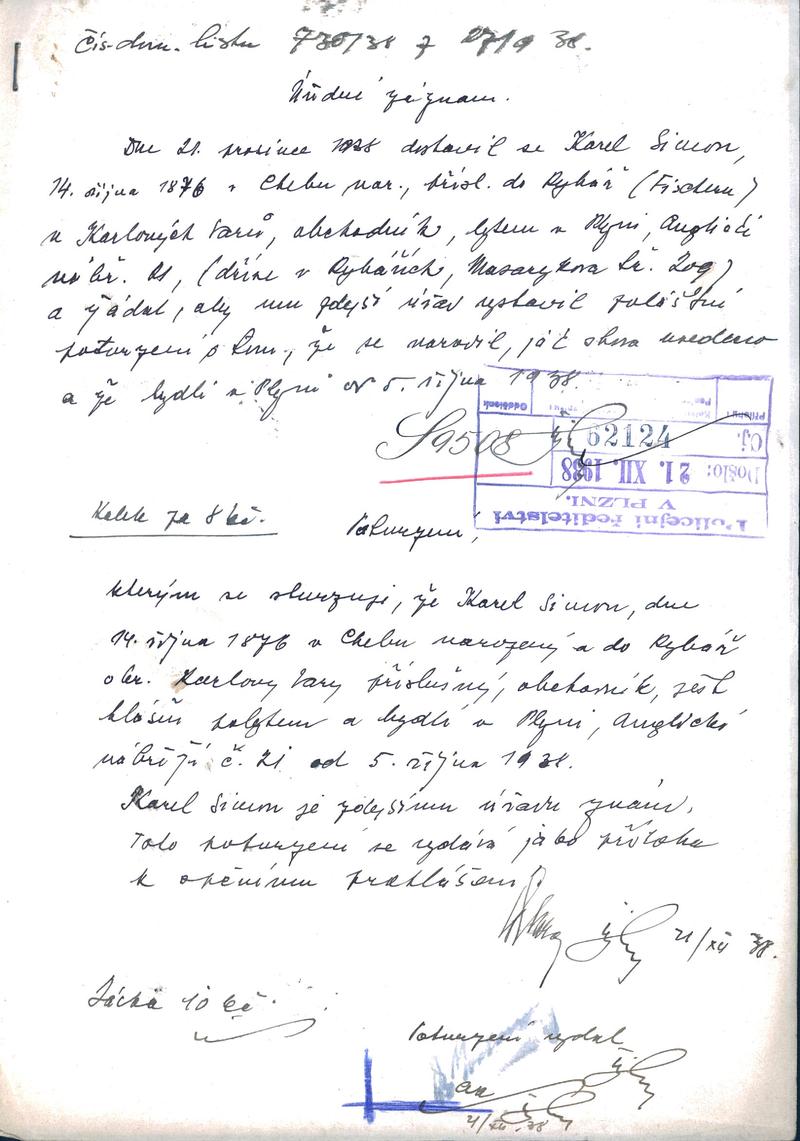 Čís. dom. listu 730/38 z 27/9 38.
Úřední záznam.
Dne 21. prosince 1938 dostavil se Karel Simon,
14. října 1876 v Chebu nar., přísl. do Rybář (Fischern)
u Karlových Varů, obchodník, bytem v Plzni, Anglické
nábř. 21, (dříve v Rybářích, Masarykova tř. 209)
a žádal, aby mu zdejší úřad vystavil zvláštní
potvrzení o tom, že se narodil, jak shora uvedeno
a že bydlí v Plzni od 5. října 1938.
S 9508
Policejní ředitelství
V PLZNI.
Došlo: 21. XII. 1938
Čj. 62124
Přílohy:
Oddělení
Kolek za 8 Kč.
Potvrzení,
kterým se stvrzuje, že Karel Simon, dne
14. října 1876 v Chebu narozený a do Rybář
okr. Karlovy Vary příslušný, obchodník, jest
hlášen pobytem a bydlí v Plzni, Anglické
nábřeží č. 21 od 5. října 1938.
Karel Simon je zdejšímu úřadu znám.
Toto potvrzení se vydává jako příloha
k opčnímu prohlášení.
21/XII 38.
Dávka 10 Kč.
Potvrzení vydal
21/XII 38